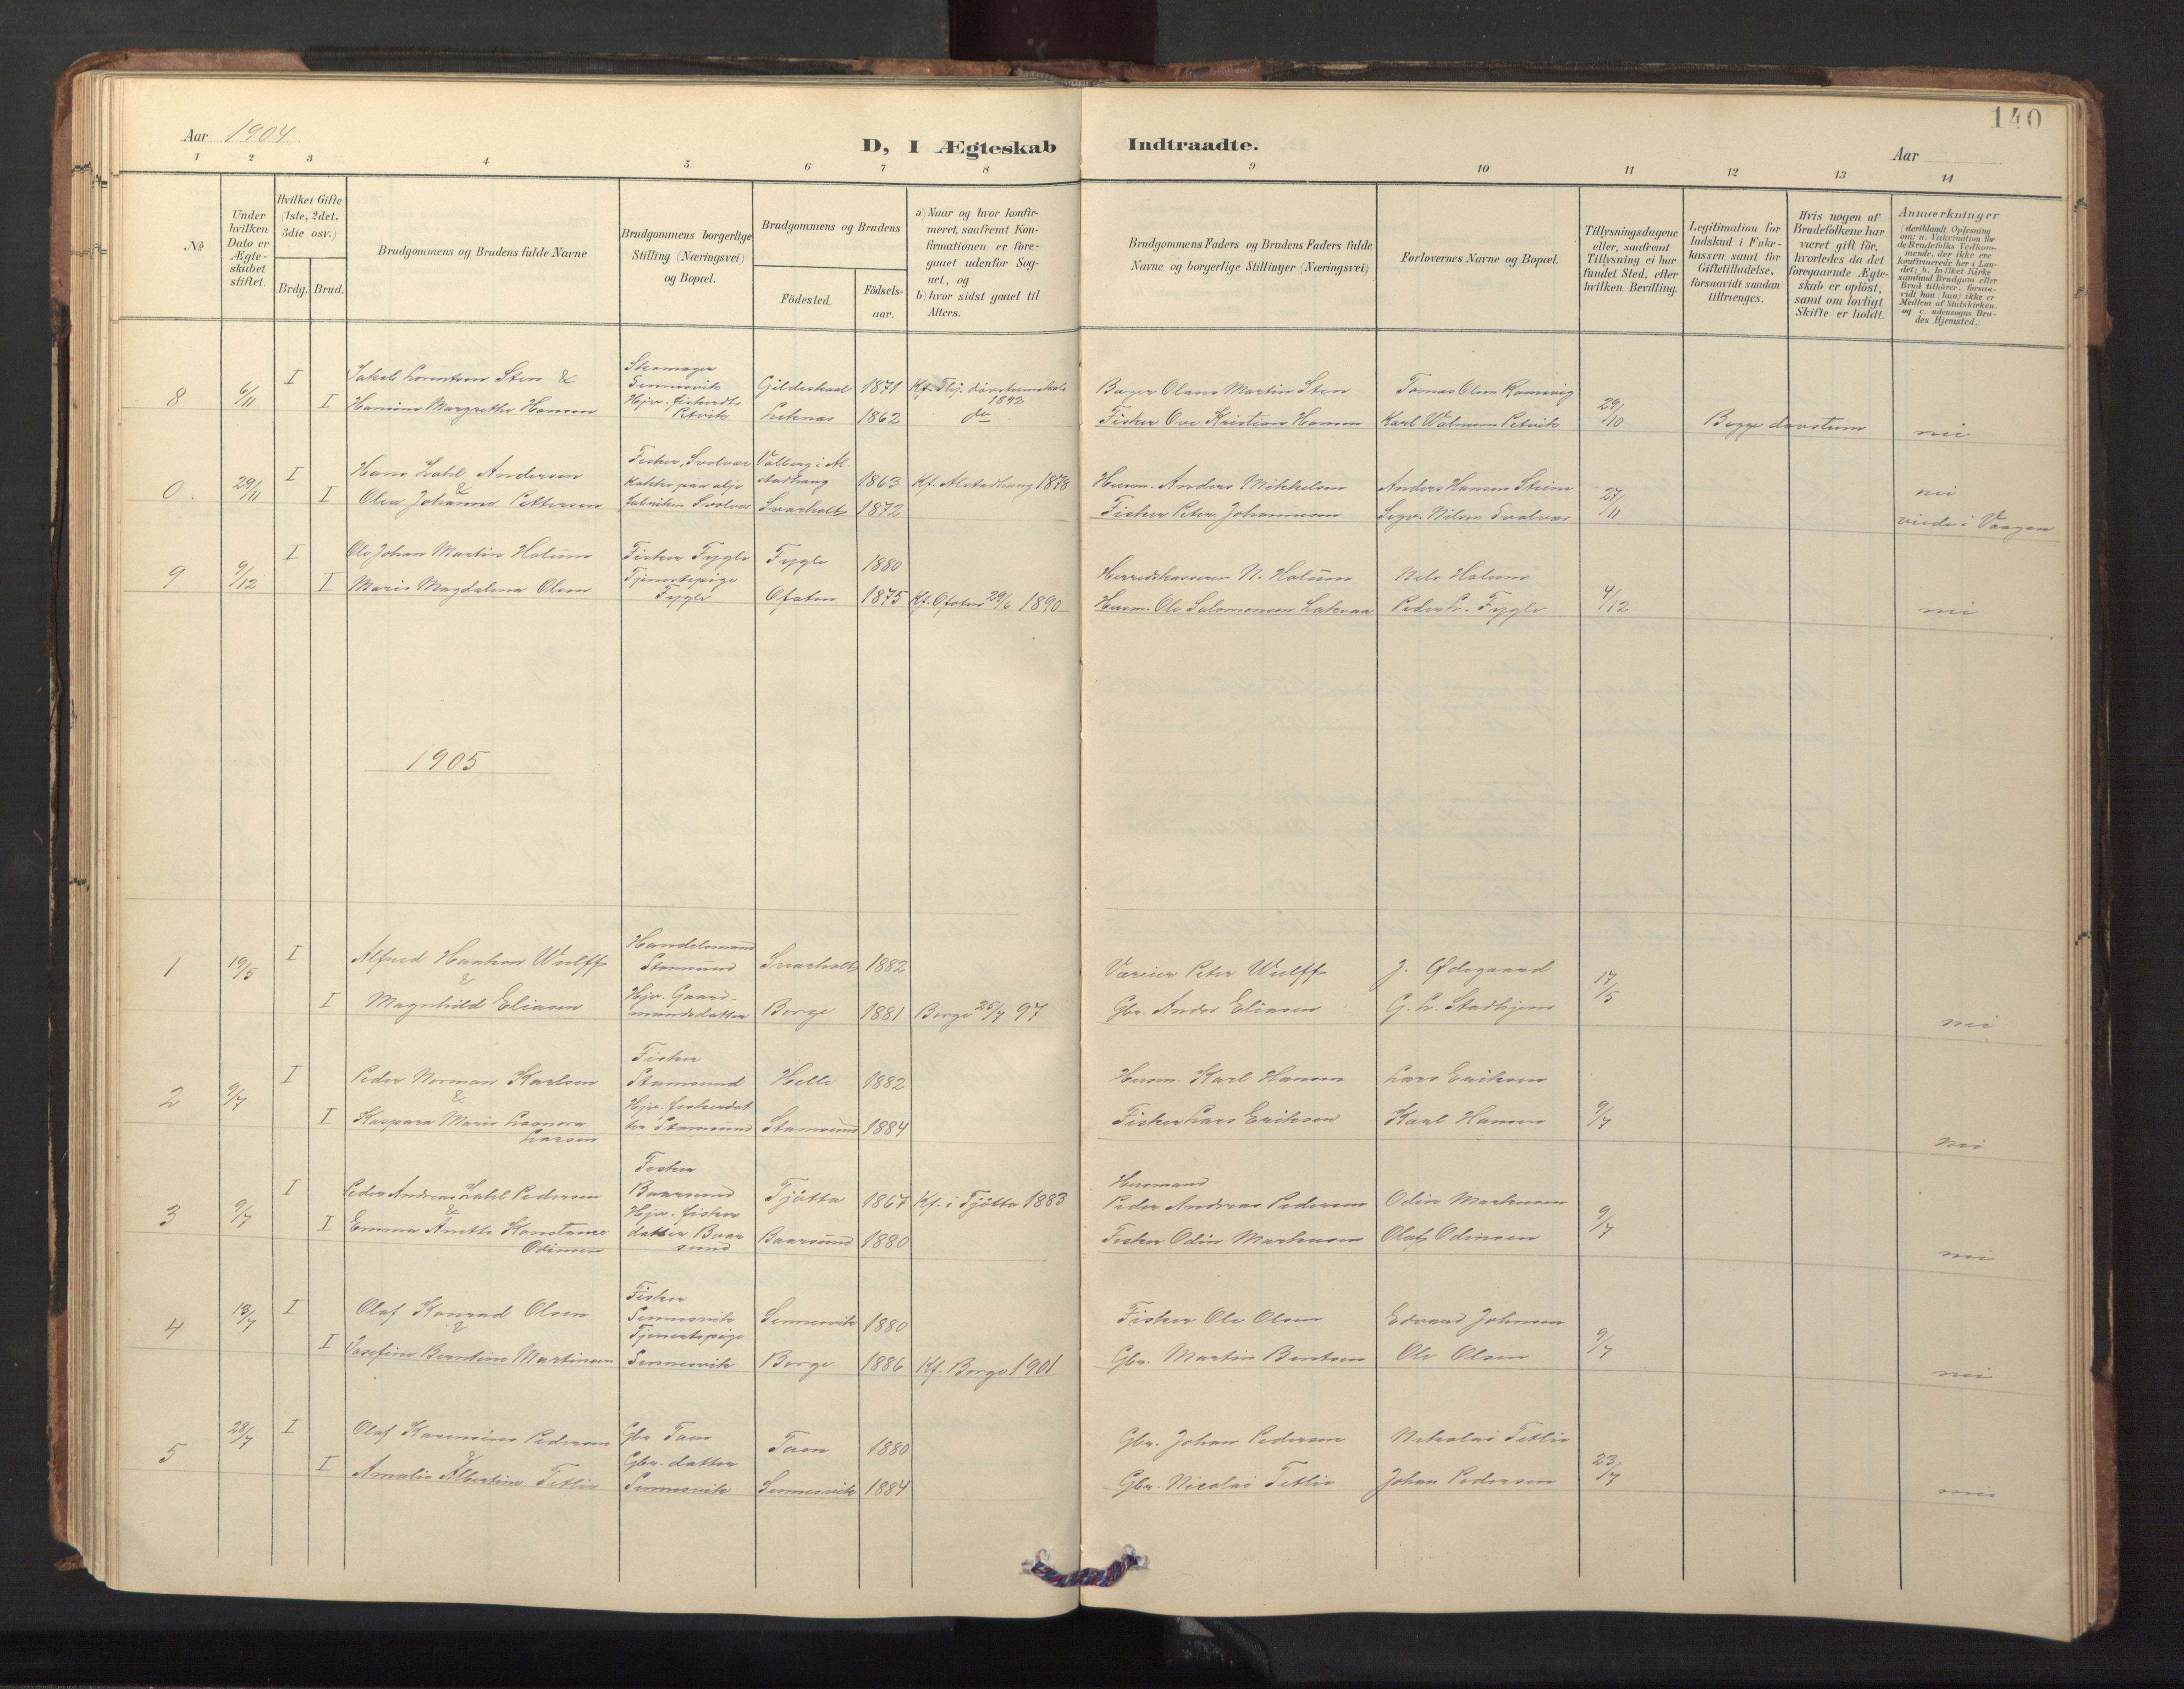 140
Aar 1904
D, I Ægteskab Indtraadte.
Aar
1 2 3 4 5 6 7 8 9 10 11 12 13 14
No
Under hvilken Dato er Ægteskabet stiftet.
Hvilket Gifte (1ste, 2det, 3die osv.)
Brdg. Brud.
Brudgommens og Brudens fulde Navne
Brudgommens borgerlige Stilling (Næringsvei) og Bopæl.
Brudgommens og Brudens
Födested.
Födsels-aar.
a) Naar og hvor konfirmeret, saafremt Konfirmationen er foregaaet udenfor Sognet, og
b) hvor sidst gaaet til Alters.
Brudgommens Faders og Brudens Faders fulde Navne og borgerlige Stillinger (Næringsvei)
Forlovernes Navne og Bopæl.
Tillysningsdagene eller, saafremt Tillysning ei har fundet Sted, efter hvilken Bevilling.
Legitimation for Indskud i Enkekassen samt for Giftetilladelse, forsaavidt saadan tiltrænges.
Hvis nogen af Brudefolkene har været gift för, hvorledes da det foregaaende Ægteskab er oplöst, samt om lovligt Skifte er holdt.
Anmærkninger (deriblandt Oplysning om: a. Vakcination for de Brudefolks Vedkommende, der ikke ere konfirmerede her i Landet; b. hvilket Kirkesamfund Brudgom eller Brud tilhörer, forsaavidt han (hun) ikke er Medlem af Statskirken, og c. udensogns Brudes Hjemsted.)
8 6/11 I Jakob Lorentsen Sten & Skomager Sennesvik Gildeskaal 1871 Kf. Thj. dövstumskole 1892 Bager Olaus Martin Sten Tomas Olsen Ramsvig
I Hansine Margrethe Hansen Hjv. fiskerdtr Petvik Leknes 1862 do Fisker Ove Kristian Hansen Karl Walmann Petvik 29/10 Begge dövstum nei
0. 29/11 I Hans Zahl Andersen & Fisker, Svolvær Valberg i Alstadhaug 1863 Kf. Alstadhaug 1878 Husm. Anders Mikkelsen Anders Hansen Steine nei
I Olea Johanne Pettersen Kokke paa olje fabriken Svolvær Svarholt 1872 Fisker Peter Johannesen Sigv. Nilsen Svolvær 27/11 viede i Vaagan
9 9/12 I Ole Johan Martin Holum Fisker Fygle Fygle 1880 Herredskasserer N. Holum Nils Holum
I Marie Magdalena Olsen Tjenestepige Fygle Ofoten 1875 Kf. Ofoten 29/6 1890 Husm. Ole Salomonsen Lakvaa Peder L. Fygle 4/12 nei
1905
1 19/5 I Alfred Haakon Wulff & Handelsmand Stamsund Svarholt 1882 Væreier Peter Wulff J. Ødegaard 17/5
I Magnhild Eliasen Hjv. Gaardmandsdatter Borge 1881 Borge 25/7 97 Gbr. Ander Eliasen G. L. Stadhjem nei
2 9/7 I Peder Norman Karlsen & Fisker Stamsund Helle 1882 Husm. Karl Hansen Lars Eriksen
I Kaspara Marie Leonora Larsen Hjv. fiskerdatter Stamsund Stamsund 1884 Fisker Lars Eriksen Karl Hansen 9/7 nei
3 9/7 I Peder Andreas Zahl Pedersen & Fisker Baarsund Tjötta 1867 Kf. i Tjötta 1883 Husmand Peder Andreas Pedersen Odin Markussen
I Emma Anette Konstance Odinsen Hjv. fisker datter Baarsund Baarsund 1880 Fisker Odin Markussen Olaf Odinsen 9/7 nei
4 13/7 I Olaf Konrad Olsen & Fisker Sennesvik Sennesvik 1880 Fisker Ole Olsen Edvard Johnsen
I Josefine Berntine Martinsen Tjenestepige Sennesvik Borge 1886 Kf. Borge 1901 Gbr. Martin Berntsen Ole Olsen 9/7 nei
5 28/7 I Olaf Karensius Pedersen & Gbr Taen Taen 1880 Gbr. Johan Pedersen Nikolai Tetlie
I Amalie Albertine Tetlie Gbr. datter Sennesvik Sennesvik 1884 Gbr. Nicolai Tetlie Johan Pedersen 23/7 nei